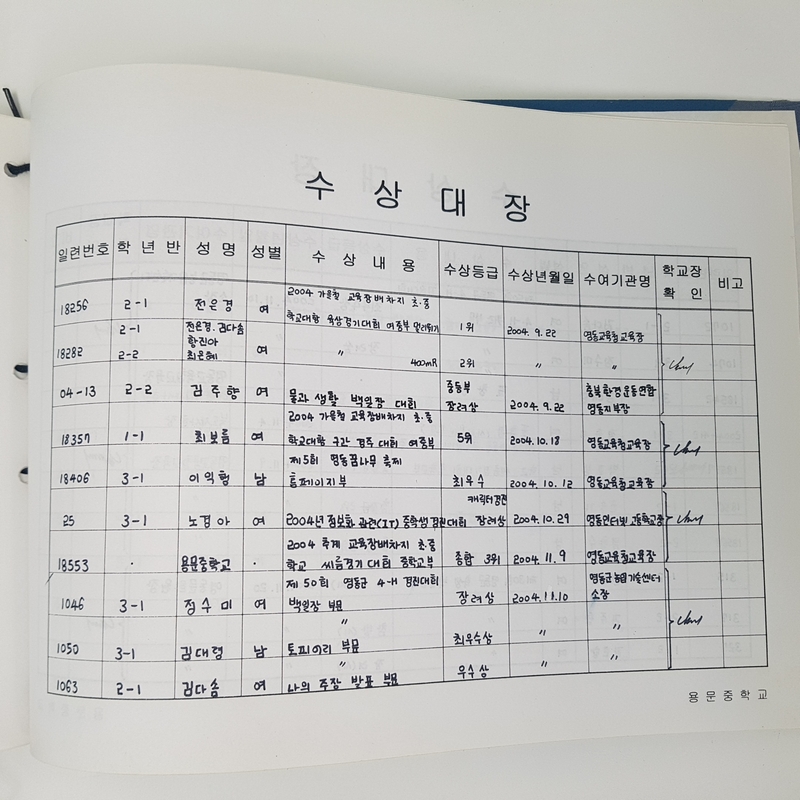 수 상 대 장
일련번호 학 년 반 성 명 성별 수 상 내 용 수상등급 수상년월일 수여기관명 학교장 확 인 비고
2004 가을철 교육장배차지 초·중
18256 2-1 전은경 여 학교대항 육상경기대회 여중부 멀리뛰기 1위 2004. 9. 22 영동교육청교육장
2-1 전은경, 김다솜
황진아
18282 2-2 최은혜 여 〃 400mR 2위 〃 〃
중등부 충북환경운동연합
04-13 2-2 김주향 여 물과 생활 백일장 대회 장려상 2004. 9. 22 영동지부장
2004 가을철 교육장배차지 초·중
18357 1-1 최보름 여 학교대항 구간 경주대회 여중부 5위 2004. 10. 18 영동교육청교육장
제5회 영동꿈나무 축제
18406 3-1 이익형 남 홈페이지부 최우수 2004. 10. 12 영동교육청교육장
캐릭터경진
25 3-1 노경아 여 2004년 정보화 관련(IT) 중학생경진대회 장려상 2004. 10. 29 영동인터넷고등학교장
2004 추계 교육장배차지 초·중
18553 · 용문중학교 · 학교 씨름경기대회 중학교부 종합 3위 2004. 11. 9 영동교육청교육장
제50회 영동군 4-H 경진대회 영동군농업기술센터
1046 3-1 정수미 여 백일장 부문 장려상 2004. 11. 10 소장
〃
1050 3-1 김대령 남 토피어리 부문 최우수상 〃 〃
〃
1063 2-1 김다솜 여 나의 주장 발표 부문 우수상 〃 〃
용 문 중 학 교